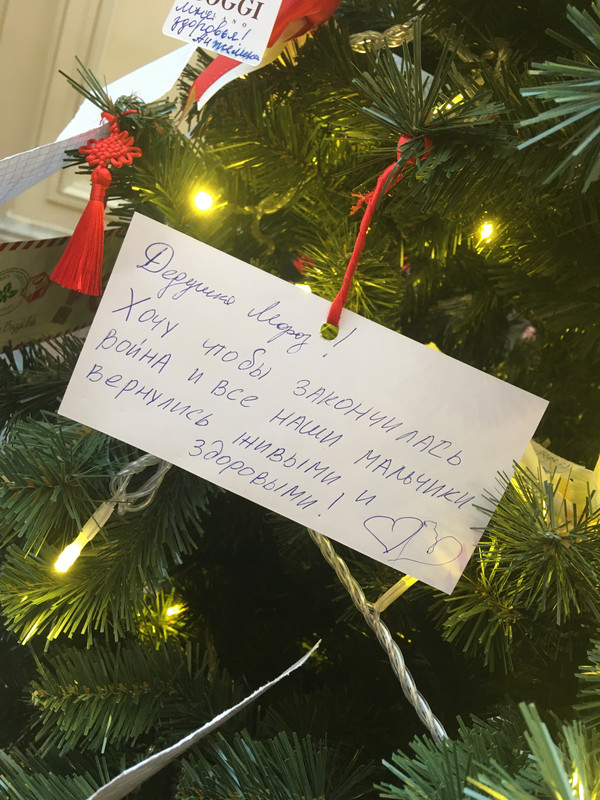 OGGI
мне
здоровья!
Дедушка Мороз!
Хочу чтобы закончилась
война и все наши мальчики
вернулись живыми и
здоровыми!